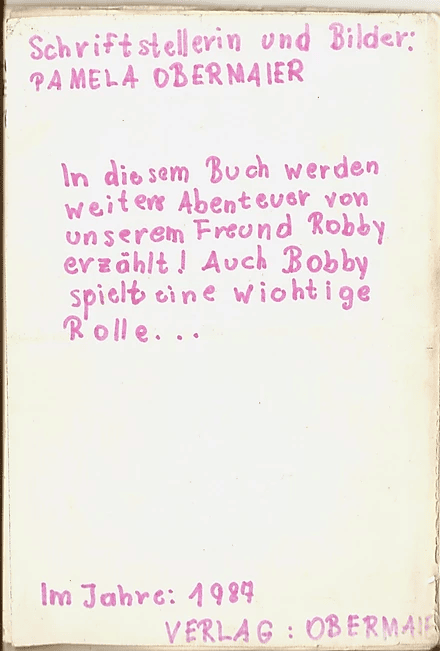 Schriftstellerin und Bilder:
PAMELA OBERMAIER
In diesem Buch werden
weitere Abenteuer von
unserem Freund Robby
erzählt! Auch Bobby
spielt eine wichtige
Rolle...
Im Jahre: 1987
VERLAG : OBERMAIE